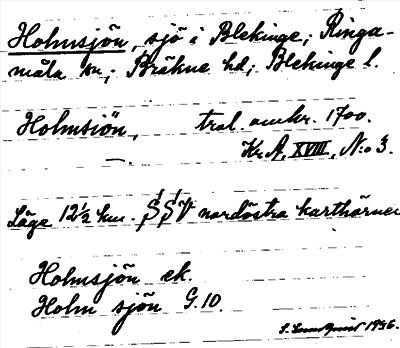 Holmsjön, sjö i Blekinge; Ringa-
måla sn; Bräkne hd; Blekinge l.
Holmsiön, tral. omkr. 1700.
Kr. A, XVIII, N:o 3.
Läge 12½ km. SSV nordöstra karthörnet
Holmsjön ek.
Holm sjön G.10.
S. Lundquist 1936.